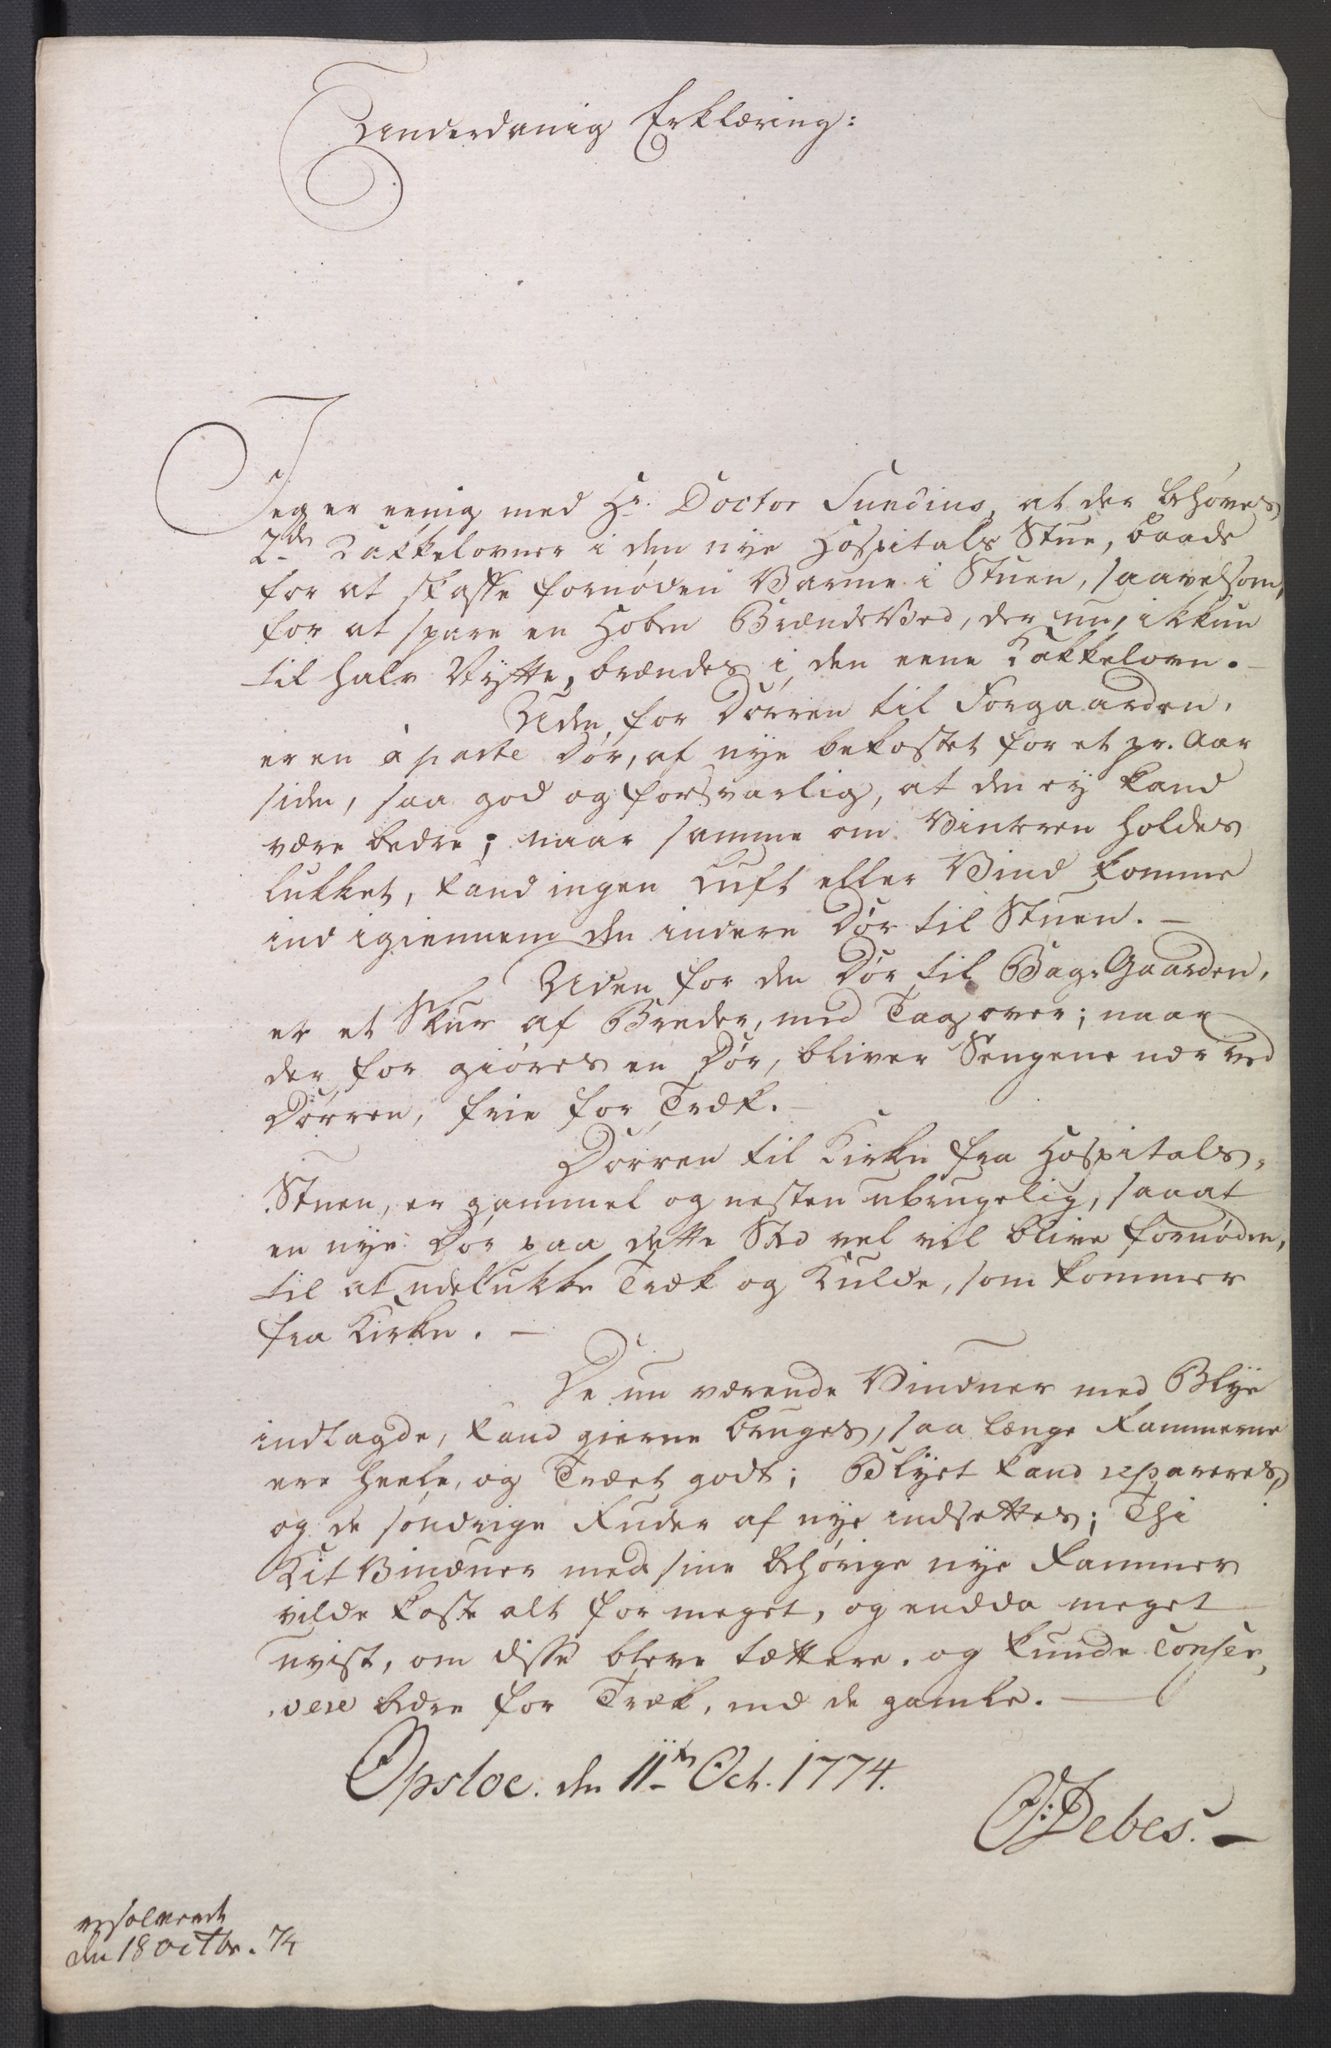 Underdanig Erklæring:
Jeg er eenig med Hr. Doctor Sundius, at der behøves
2de Kakkelovner i den nye Hospitals Stue, baade
for at skaffe fornøden Varme i Stuen, saavelsom,
for at spare en Hoben BrændeVed, der nu, ikkun
til halv Nytte, brændes i den eene Kakkelovn.
Uden for Dørren til Forgaarden,
er en à parte Dør, af nye bekostet for et pr. Aar
siden, saa god og forsvarlig, at den ey kand
være bedre; naar samme om Vinteren holdes
lukket, kand ingen Luft eller Vind komme
ind igiennem den indere Dør til Stuen. —
Uden for den Dør til Bag-Gaarden,
er et Skur af Breder, med Tag over; naar
der for giøres en Dør, bliver Sengene nær ved
Dørren, frie for Træk.
Dørren til Kirken fra Hospitals-
Stuen, er gammel og nesten ubrugelig, saa at
en nye Dør paa dette Sted vel vil blive fornøden,
til at udelukke Træk og Kulde, som kommer
fra Kirken. —
De nu værende Vinduer med Blye
indlagde, kand gierne bruges, saa længe Rammerne
ere heele, og Træet godt; Blyet kand repareres,
og de søndrige Ruder af nye indsettes; Thi
Kit Vinduer med sine behørige nye Rammer
vilde koste alt for meget, og endda meget
uvist, om disse bleve tættere, og kunde conser-
vere bedre for Træk, end de gamle. —
Opsloe. den 11te Oct. 1774.
O: Debes. —
resolveret
den 18 octbr. 74